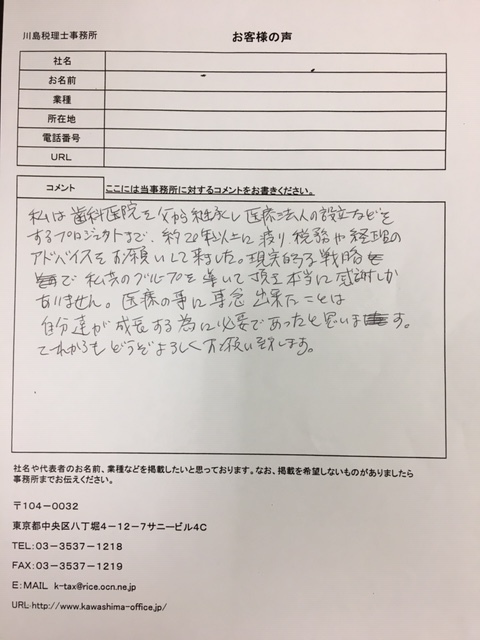 川島税理士事務所
お客様の声
社名
お名前
業種
所在地
電話番号
URL
コメント
ここには当事務所に対するコメントをお書きください。
私は歯科医院を父から継承し医療法人の設立などを
するプロジェクトまで、約20年以上に渡り、税務や経理の
アドバイスをお願いして来ました。現実的な戦略
で私共のグループを導いて頂き本当に感謝しか
ありません。医療の事に専念出来たことは
自分達が成長する為に必要であったと思います。
これからもどうぞよろしくお願い致します。
社名や代表者のお名前、業種などを掲載したいと思っております。なお、掲載を希望しないものがありましたら
事務所までお伝えください。
〒104-0032
東京都中央区八丁堀4-12-7サニービル4C
TEL:03-3537-1218
FAX:03-3537-1219
E:MAIL k-tax@rice.ocn.ne.jp
URL:http://www.kawashima-office.jp/